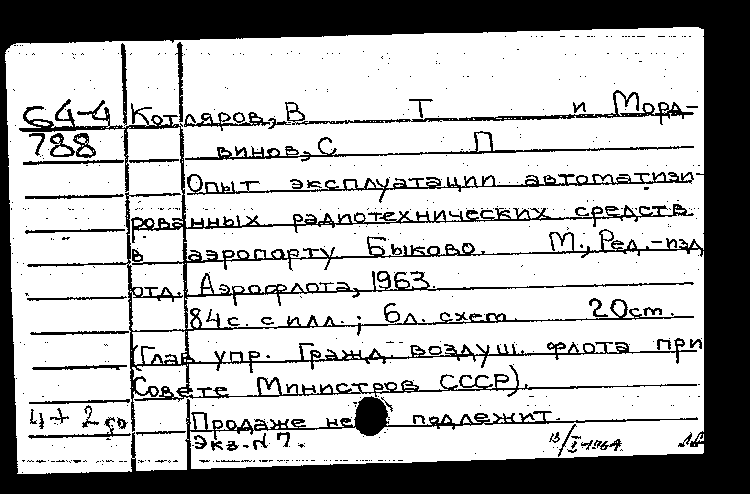 64-4 Котляров, В Т и Морд-
788 винов, С П
Опыт эксплуатации автоматизи-
рованных радиотехнических средств
в аэропорту Быково. М., Ред.-изд
отд. Аэрофлота, 1963.
84 с. с илл.; 6 л. схем. 20 см.
(Глав упр. Гражд. воздуш. флота при
Совете Министров СССР).
4+2 Продаже не подлежит.
Экз. N 7. 13/I-1964